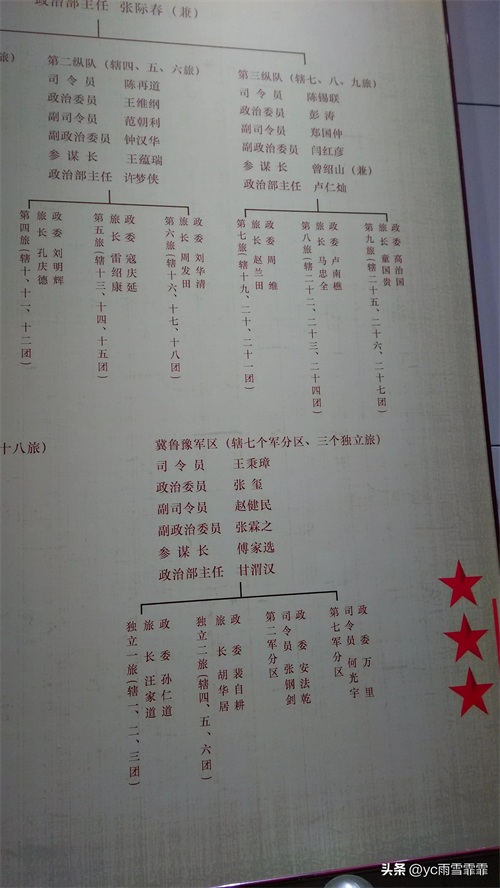 政治部主任 张际春（兼）
旅）
第二纵队（辖四、五、六旅）
司令员 陈再道
政治委员 王维纲
副司令员 范朝利
副政治委员 钟汉华
参谋长 王蕴瑞
政治部主任 许梦侠
第三纵队（辖七、八、九旅）
司令员 陈锡联
政治委员 彭涛
副司令员 郑国仲
副政治委员 闫红彦
参谋长 曾绍山（兼）
政治部主任 卢仁灿
第四旅（辖十、十一、十二团）
旅长 孔庆德
政委 刘明辉
第五旅（辖十三、十四、十五团）
旅长 雷绍康
政委 寇庆延
第六旅（辖十六、十七、十八团）
旅长 周发田
政委 刘华清
第七旅（辖十九、二十、二十一团）
旅长 赵兰田
政委 周维
第八旅（辖二十二、二十三、二十四团）
旅长 马忠全
政委 卢南樵
第九旅（辖二十五、二十六、二十七团）
旅长 童国贵
政委 高治国
十八旅）
冀鲁豫军区（辖七个军分区、三个独立旅）
司令员 王秉璋
政治委员 张玺
副司令员 赵健民
副政治委员 张霖之
参谋长 傅家选
政治部主任 甘渭汉
独立一旅（辖一、二、三团）
旅长 汪家道
政委 孙仁道
独立二旅（辖四、五、六团）
旅长 胡华居
政委 裴自耕
第二军分区
司令员 张钢剑
政委 安法乾
第七军分区
司令员 何光宇
政委 万里
头条 @yc雨雪霏霏